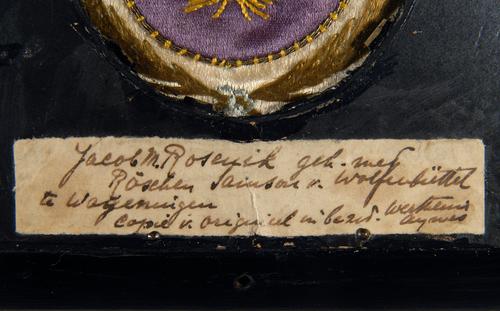 Jacob M. Rosenik geh. met
Röschen Samson v. Wolfenbüttel
te Wageningen
copie v. origineel in bezit.